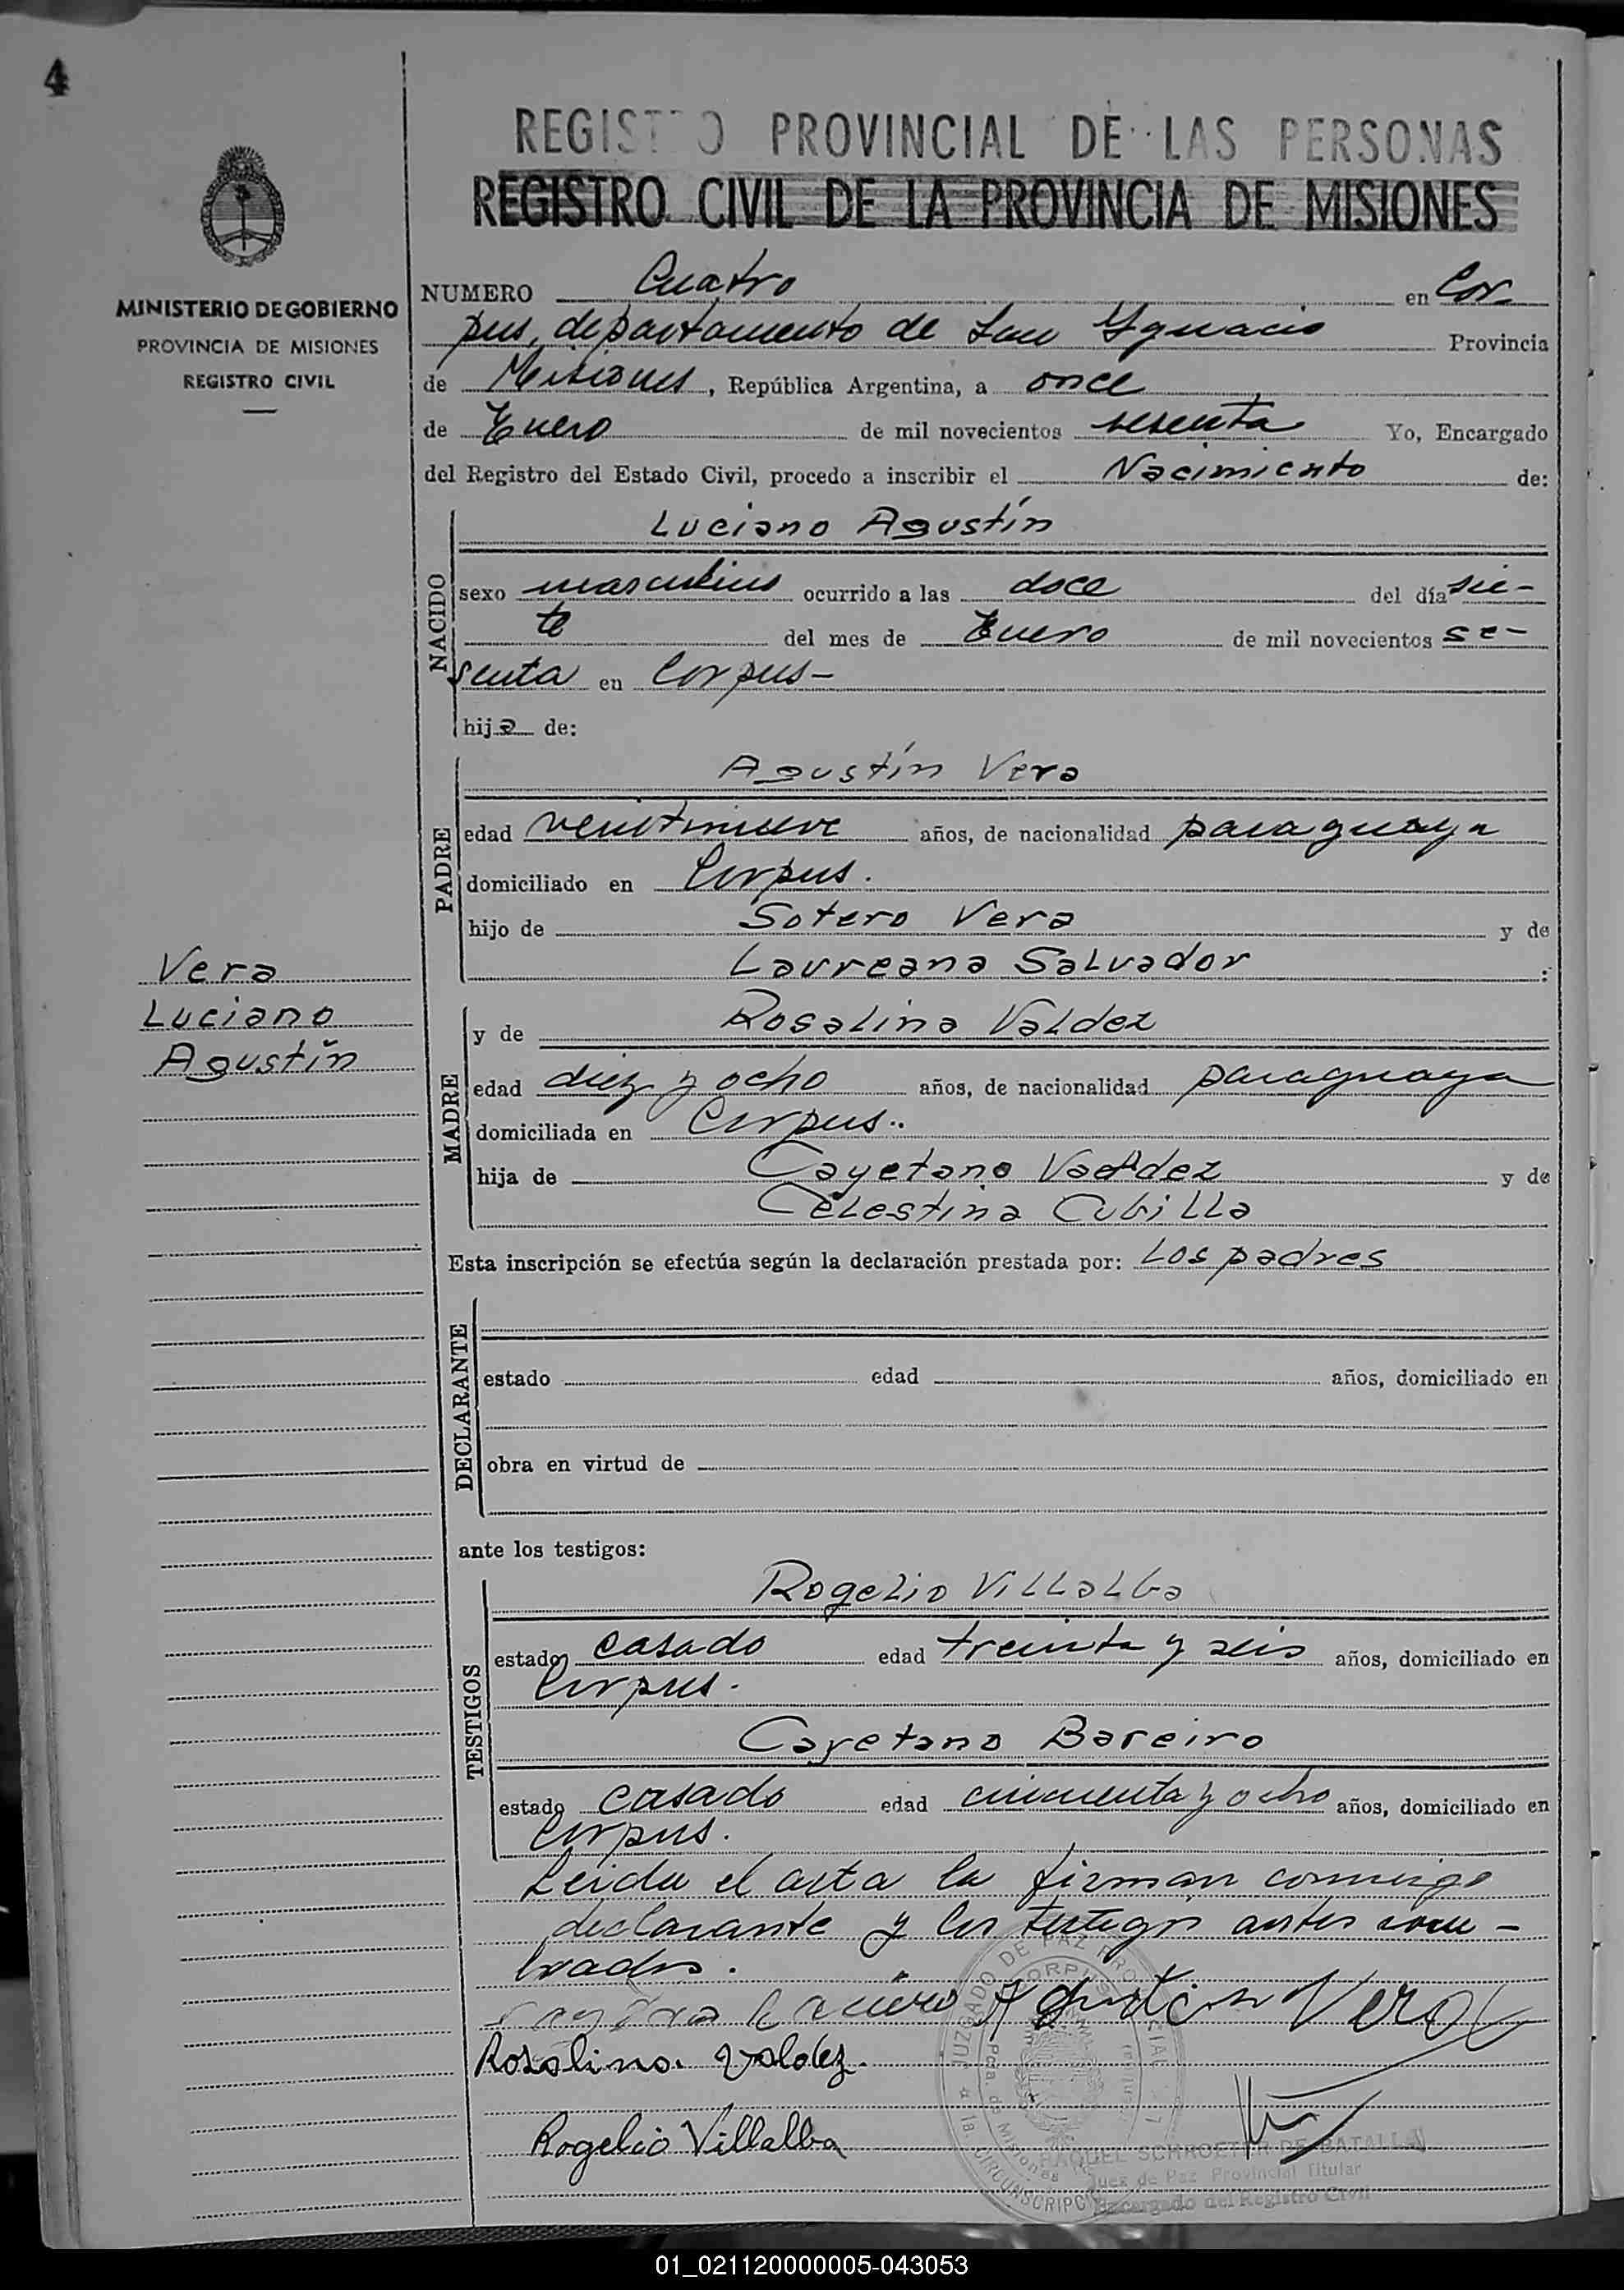 4
REGISTRO PROVINCIAL DE LAS PERSONAS
REGISTRO CIVIL DE LA PROVINCIA DE MISIONES
MINISTERIO DE GOBIERNO
PROVINCIA DE MISIONES
REGISTRO CIVIL
NUMERO Cuatro en Cor-
pus, departamento de San Ygnacio Provincia
de Misiones, República Argentina, a once
de Enero de mil novecientos sesenta Yo, Encargado
del Registro del Estado Civil, procedo a inscribir el Nacimiento de:
NACIDO
Luciano Agustín
sexo masculino ocurrido a las doce del día sie-
te del mes de Enero de mil novecientos se-
senta en Corpus-
hijo de:
PADRE
Agustín Vera
edad veintinueve años, de nacionalidad paraguaya
domiciliado en Corpus.
hijo de Sotero Vera y de
Laureana Salvador :
Vera
Luciano
Agustín
MADRE
y de Rosalina Valdez
edad diez y ocho años, de nacionalidad paraguaya
domiciliada en Corpus..
hija de Cayetano Valdez y de
Celestina Cubilla
Esta inscripción se efectúa según la declaración prestada por: Los padres
DECLARANTE
estado edad años, domiciliado en
obra en virtud de
ante los testigos:
TESTIGOS
Rogelio Villalba
estado casado edad treinta y seis años, domiciliado en
Corpus.
Cayetano Bareiro
estado casado edad cincuenta y ocho años, domiciliado en
Corpus.
Leida el acta la firman conmigo
declarante y los testigos antes nom-
brados.
Agustin Vera
Rosalina Valdez.
Rogelio Villalba
JUZGADO DE PAZ PROVINCIAL
CORPUS
Pcia. de Misiones
CIRCUNSCRIPCION
RAQUEL SCHROETER DE BATALLA
Juez de Paz Provincial Titular
Encargado del Registro Civil
01_021120000005-043053